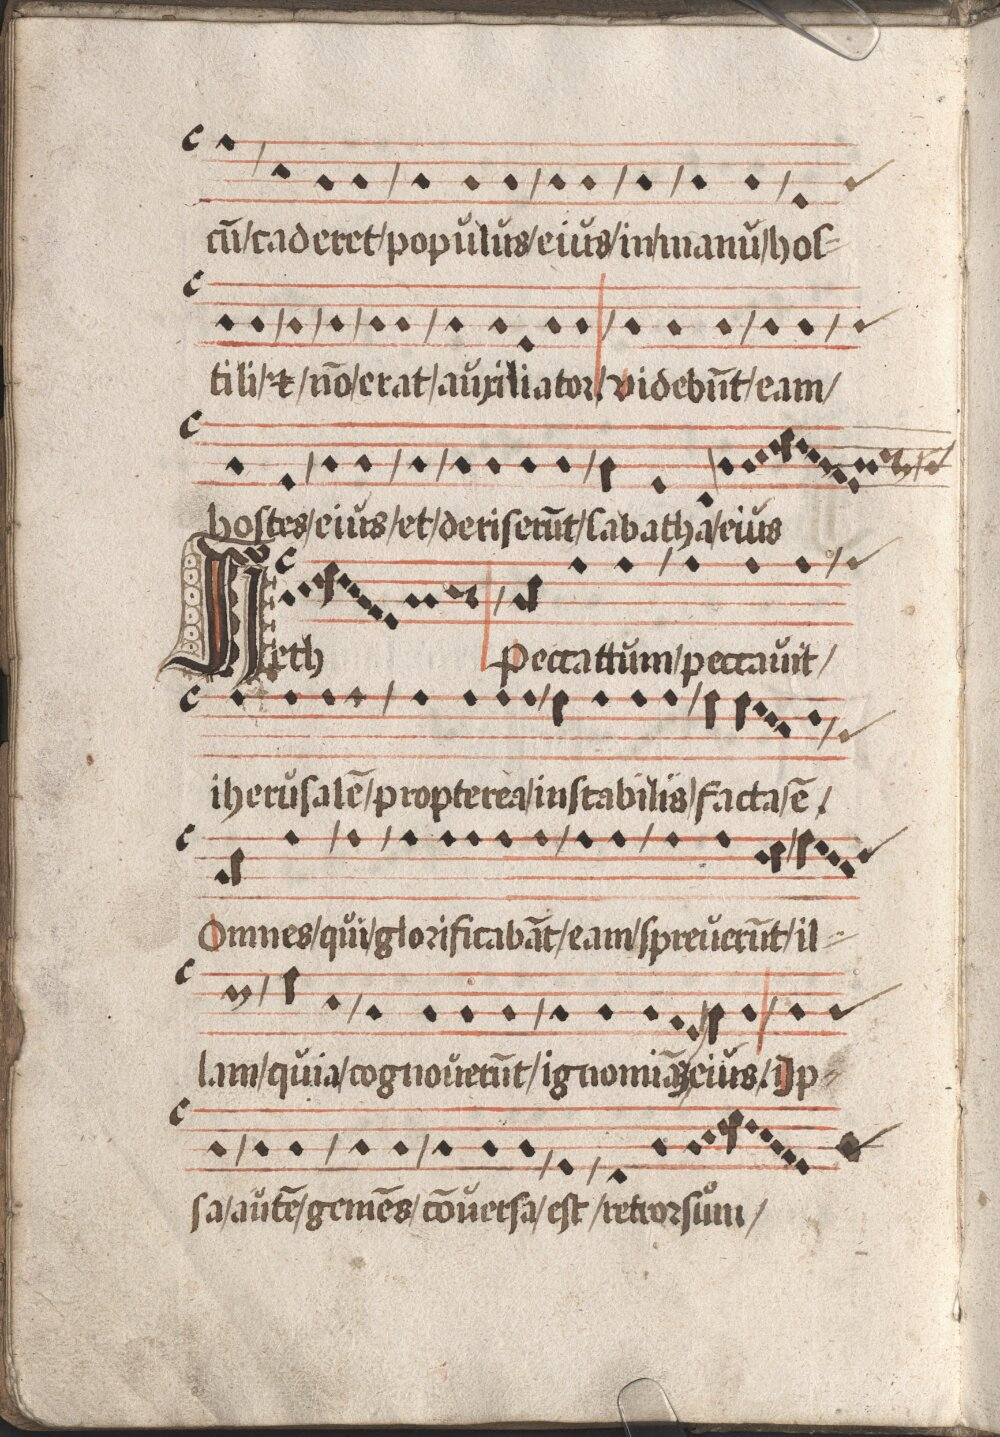 cū/caderet/populus/eius/in/manu/hos-
tili/⁊/nō/erat/auxiliator/videbūt/eam/
hostes/eius/et/deriserūt/sabatha/eius
Heth Peccattum/peccauit/
iherusalē/propterea/instabilis/facta/ē/
Omnes/qui/glorificabāt/eam/spreuerūt/il-
lam/quia/cognouerūt/ignomiā/eius/Ip-
sa/autē/gemēs/cōuersa/est/retrorsum/